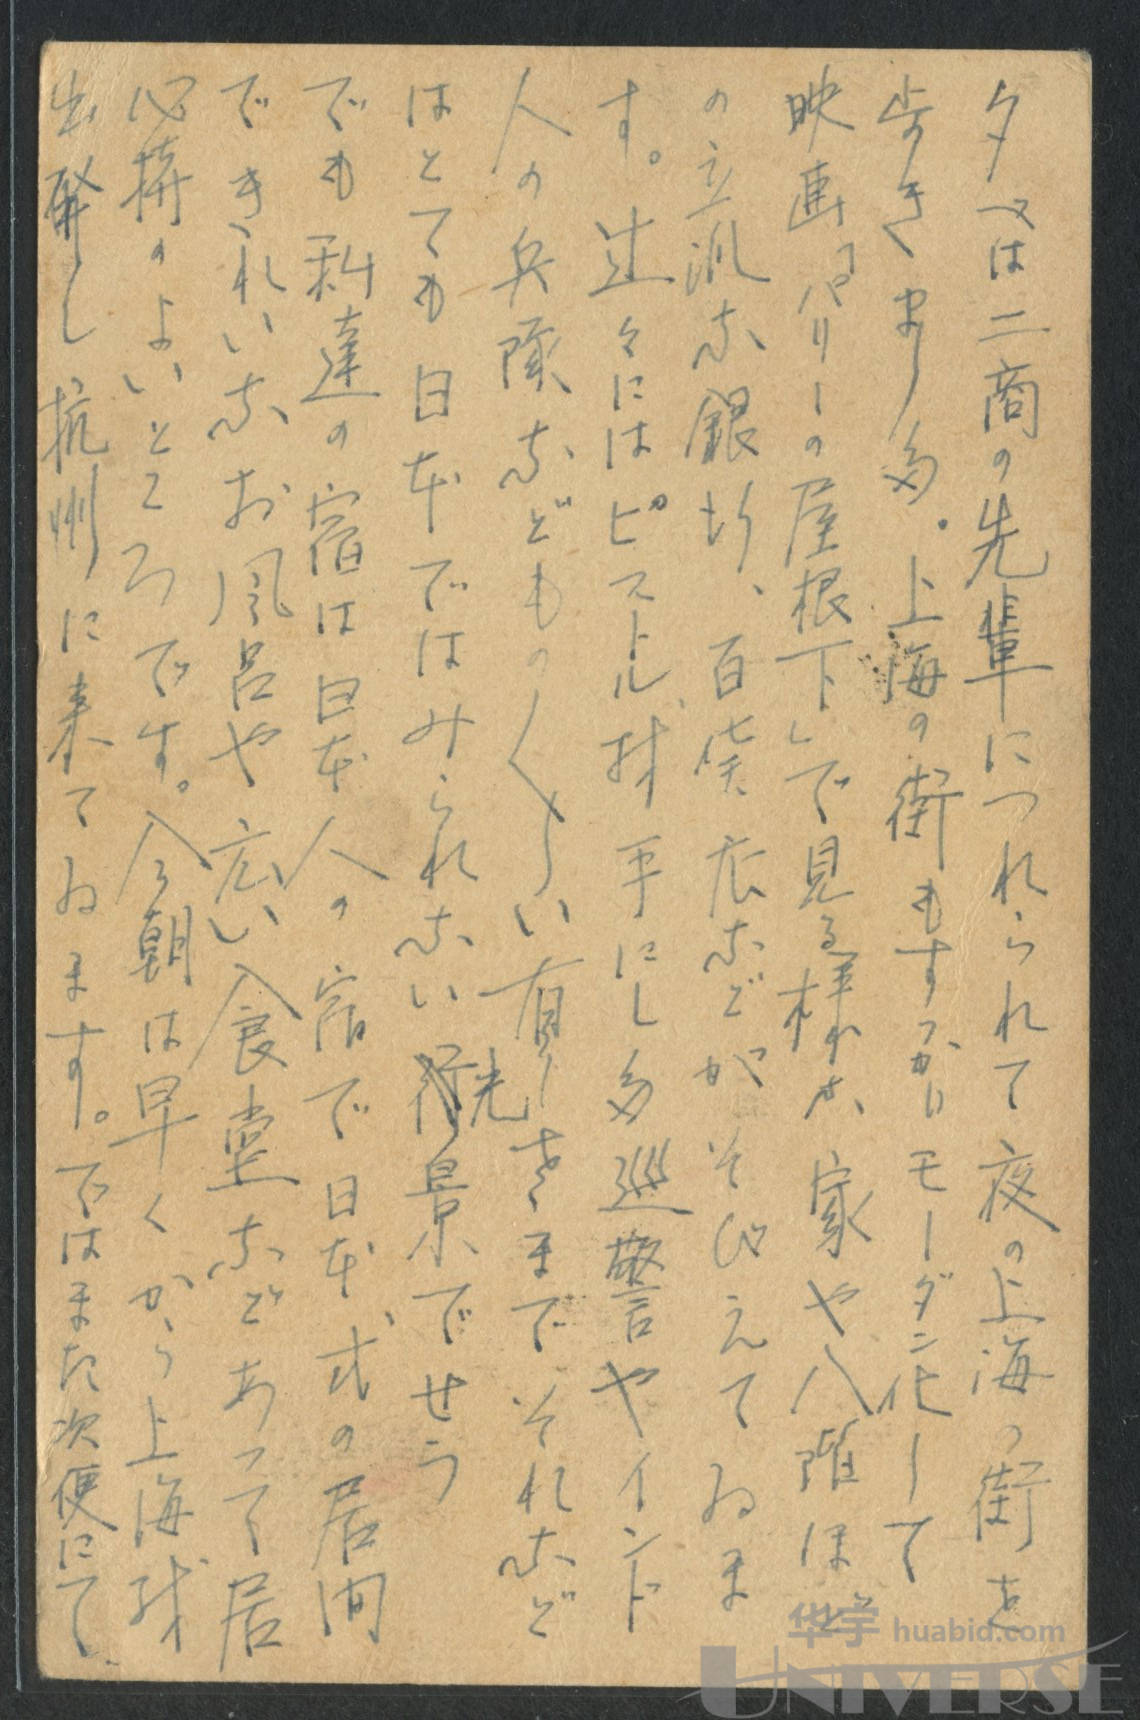 夕又は二商の先輩につれられて夜の上海の街を
歩きました。上海の街もすっかりモーダン化して
映画「パリーの屋根下」で見る様な家や八階ほど
の立派な銀行、百貨店などがそびえてゐま
す。辻々にはピストルを手にした巡警やインド
人の兵隊などものく しい有さままでそれなど
はとても日本ではみられない光景でせう
でも私達の宿は日本人の宿で日本式の居間
できれいなお風呂や広い食堂などあって居
心持のよいところです。今朝は早くから上海を
出発し杭州に来てゐます。ではまた次便にて
华宇 huabid.com
UNIVERSE